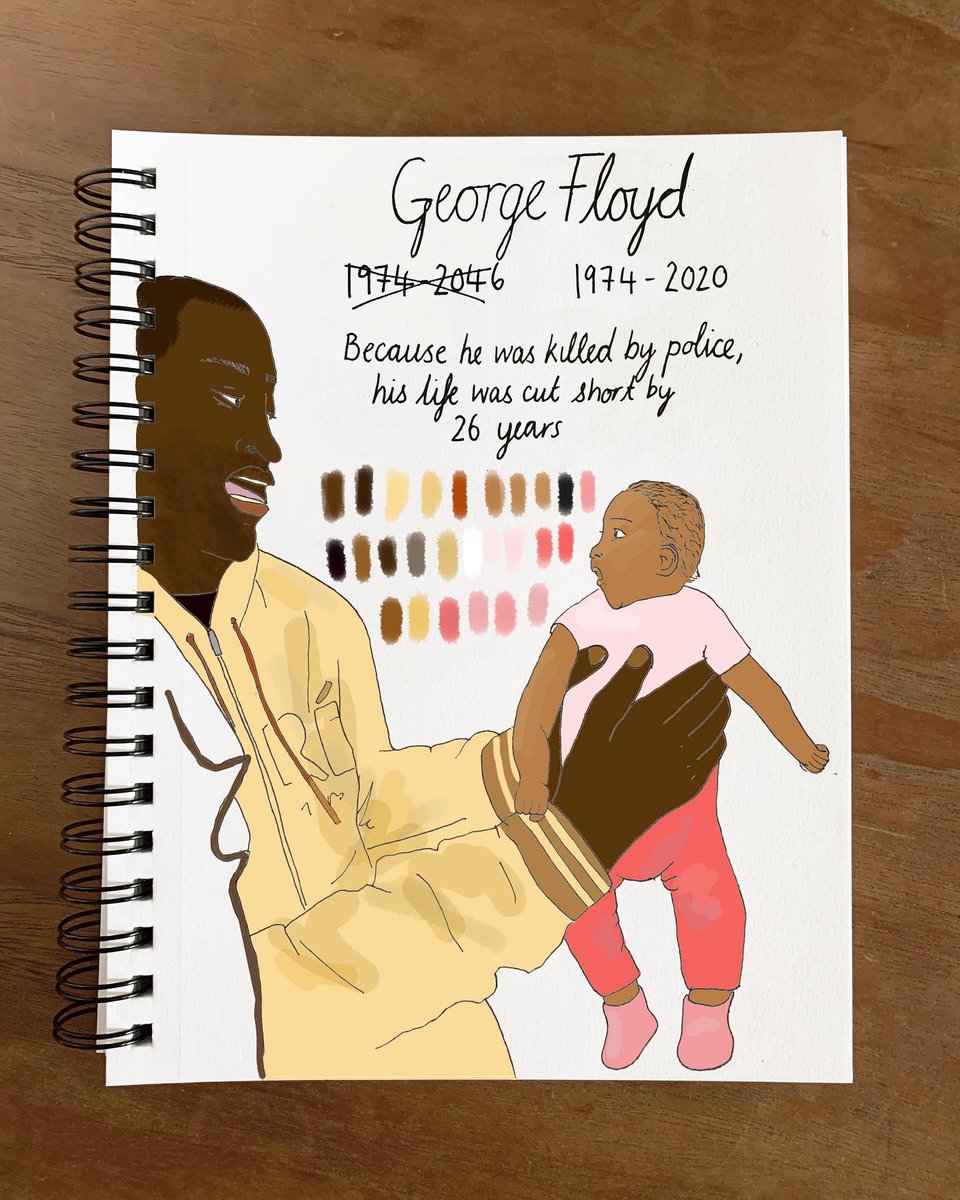 George Floyd
1974-2046 1974-2020
Because he was killed by police,
his life was cut short by
26 years